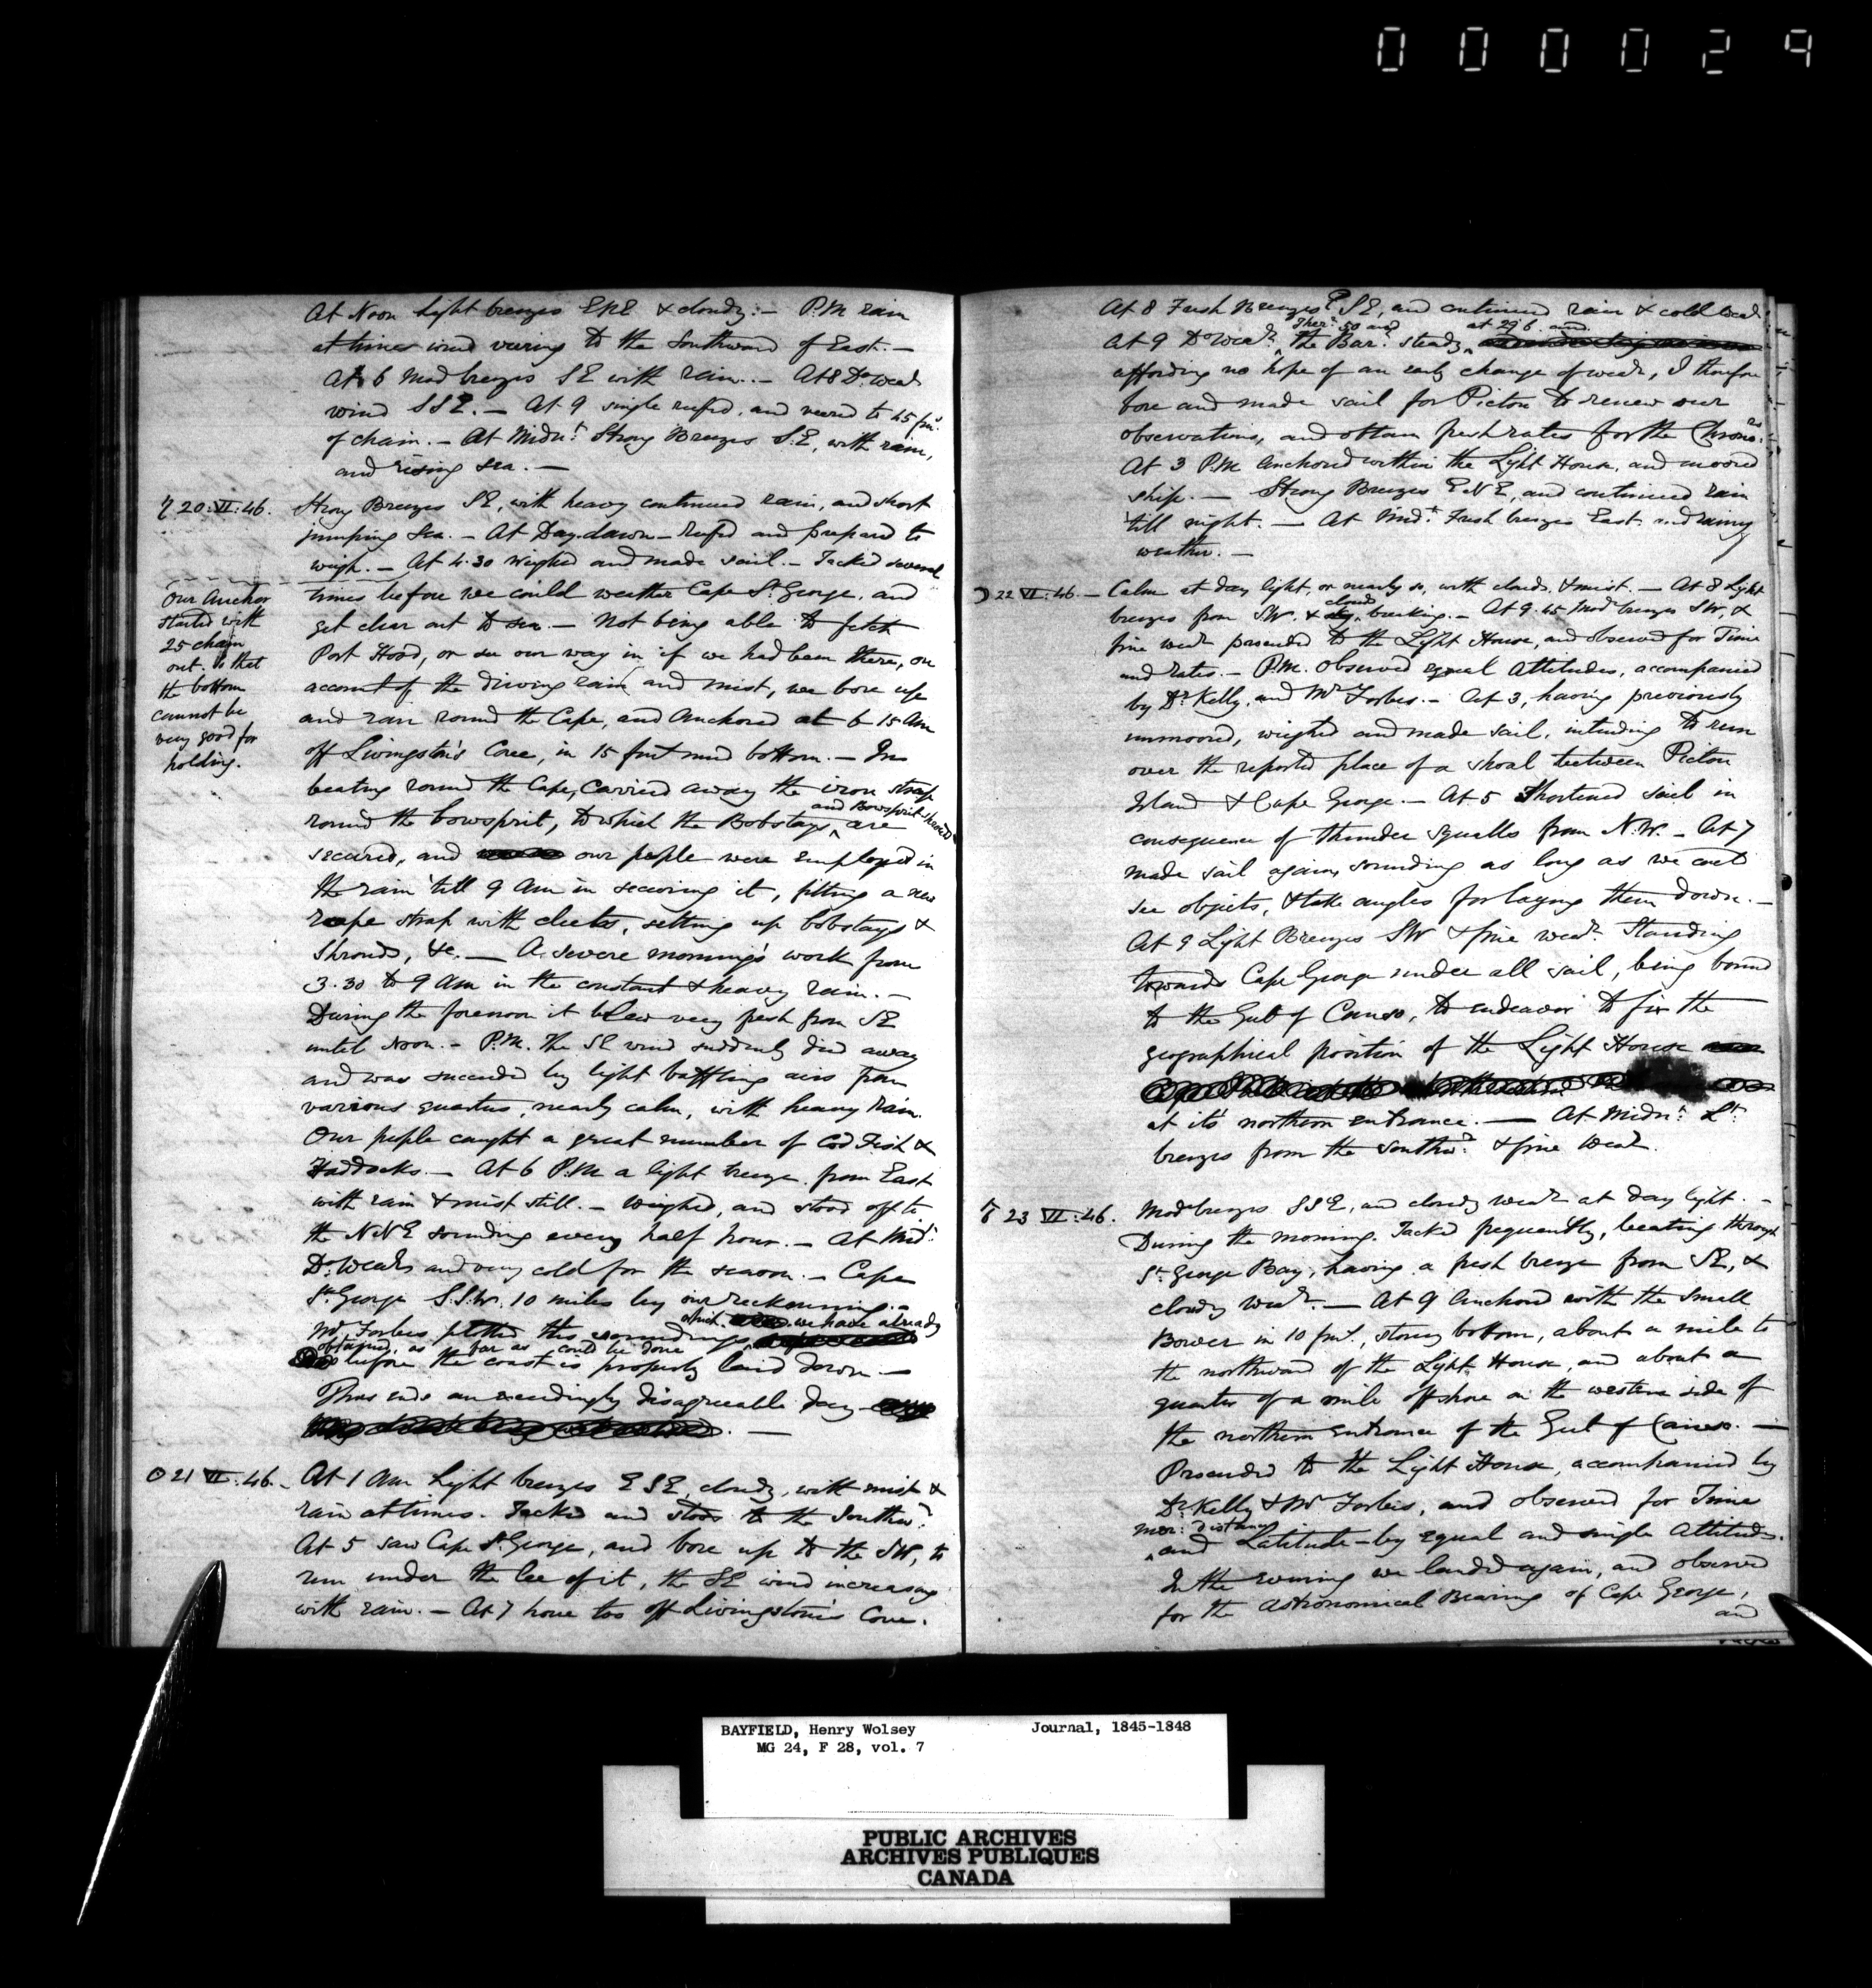 000029
At Noon light breezes ENE & cloudy:- P.M rain
at times wind veering to the Southward of East.-
At 6 Mod breezes SE with rain.- At 8 Do. Wear
wind SSE.- At 9 single reefed, and veered to 45 fms.
of chain.- At Midnt. Strong Breezes S.E, with rain,
and rising sea.-
♄ 20:VI:46.
Strong Breezes SE, with heavy continued rain, and short
jumping sea.- At Day-dawn-reefed and prepared to
weigh.- At 4.30 weighed and made sail.- Tacked several
times before we could weather Cape St. George, and
get clear out to sea.- Not being able to fetch
Port Hood, or see our way in if we had been there, on
account of the driving rain and mist, we bore up
and ran round the Cape, and anchored at 6 15 Am
off Livingston's Cove, in 15 fms mud bottom.- In
beating round the Cape, carried away the iron strap
and Bowsprit shrouds
round the bowsprit, to which the Bobstays ^ are
secured, and our people were employed in
the rain till 9 Am in securing it, fitting a new
rope strap with cleets, setting up bobstays &
Shrouds, &c.- A severe morning's work from
3.30 to 9 Am in the constant & heavy rain.-
During the forenoon it blew very fresh from SE
until Noon.- P.M. The SE wind suddenly died away
and was succeeded by light baffling airs from
various quarters, nearly calm, with heavy rain.
Our people caught a great number of Cod Fish &
Haddocks.- At 6 P.M a light breeze from East
with rain & mist still.- Weighed, and stood off to
the NNE sounding every half hour.- At Midt.
Do. Wear and very cold for the season.- Cape
St. George S.S.W. 10 miles by our reckonning.-
which we have already
Mr Forbes plotted the soundings ^
obtained, as far as could be done
before the coast is properly laid down.-
Thus ends an exceedingly disagreeable day
.-
Our Anchor
started with
25 chain
out. So that
the bottom
cannot be
very good for
holding.
☉ 21 VI:46.-
At 1 Am light breezes ESE, cloudy, with mist &
rain at times. Tacked and stood to the Southwd.
At 5 saw Cape St. George, and bore up to the SW, to
run under the lee of it, the SE wind increasing
with rain.- At 7 hove too off Livingstone's Cove.
At 8 Fresh Breezes ESE, and continued rain & cold Wear
Ther. 50 and at 29.6 and
At 9 Do Wear. ^ the Bar. steady ^
affording no hope of an early change of wear, I therefore
bore and made sail for Pictou to renew our
observations, and obtain fresh rates for the Chronors.
At 3 P.M anchored within the Light House, and moored
ship.- Strong Breezes ENE, and continued rain
till night.- At Midt. Fresh breezes East and rainy
weather.-
☽ 22 VI:46.-
Calm at day light, or nearly so, with clouds & mist.- At 8 Light
clouds
breezes from SW. & breaking.- At 9.45 Mod breezes SW, &
fine wear proceeded to the Light House, and observed for Time
and rates.- P.M. observed equal Altitudes, accompanied
by Dr. Kelly, and Mr Forbes.- At 3, having previously
unmoored, weighed and made sail, intending to run
over the reported place of a shoal between Pictou
Island & Cape George.- At 5 Shortened sail in
consequence of thunder squalls from N.W.- At 7
made sail again, sounding as long as we could
see objects, & take angles for laying them down.-
At 9 Light Breezes SW & fine wear. Standing
towards Cape George under all sail, being bound
to the Gut of Canso, to endeavor to fix the
geographical position of the Light House
at it's northern entrance.- At Midnt. Lt.
breezes from the Southwd. & fine Wear.
♂ 23 VI:46.
Mod breezes SSE, and cloudy wear at day light.-
During the morning. Tacked frequently, beating through
St. George Bay, having a fresh breeze from SE, &
cloudy wear.- At 9 anchored with the Small
Bower in 10 fms., stoney bottom, about a mile to
the northward of the Light House, and about a
quarter of a mile off shore on the western side of
the northern entrance of the Gut of Canso.-
Proceeded to the Light House, accompanied by
Dr. Kelly & Mr Forbes, and observed for Time
mer: distance
^ and Latitude-by equal and single altitudes.
In the evening we landed again, and observed
for the Astronomical Bearing of Cape George,
and
BAYFIELD, Henry Wolsey Journal, 1845-1848
MG 24, F 28, vol. 7
PUBLIC ARCHIVES
ARCHIVES PUBLIQUES
CANADA